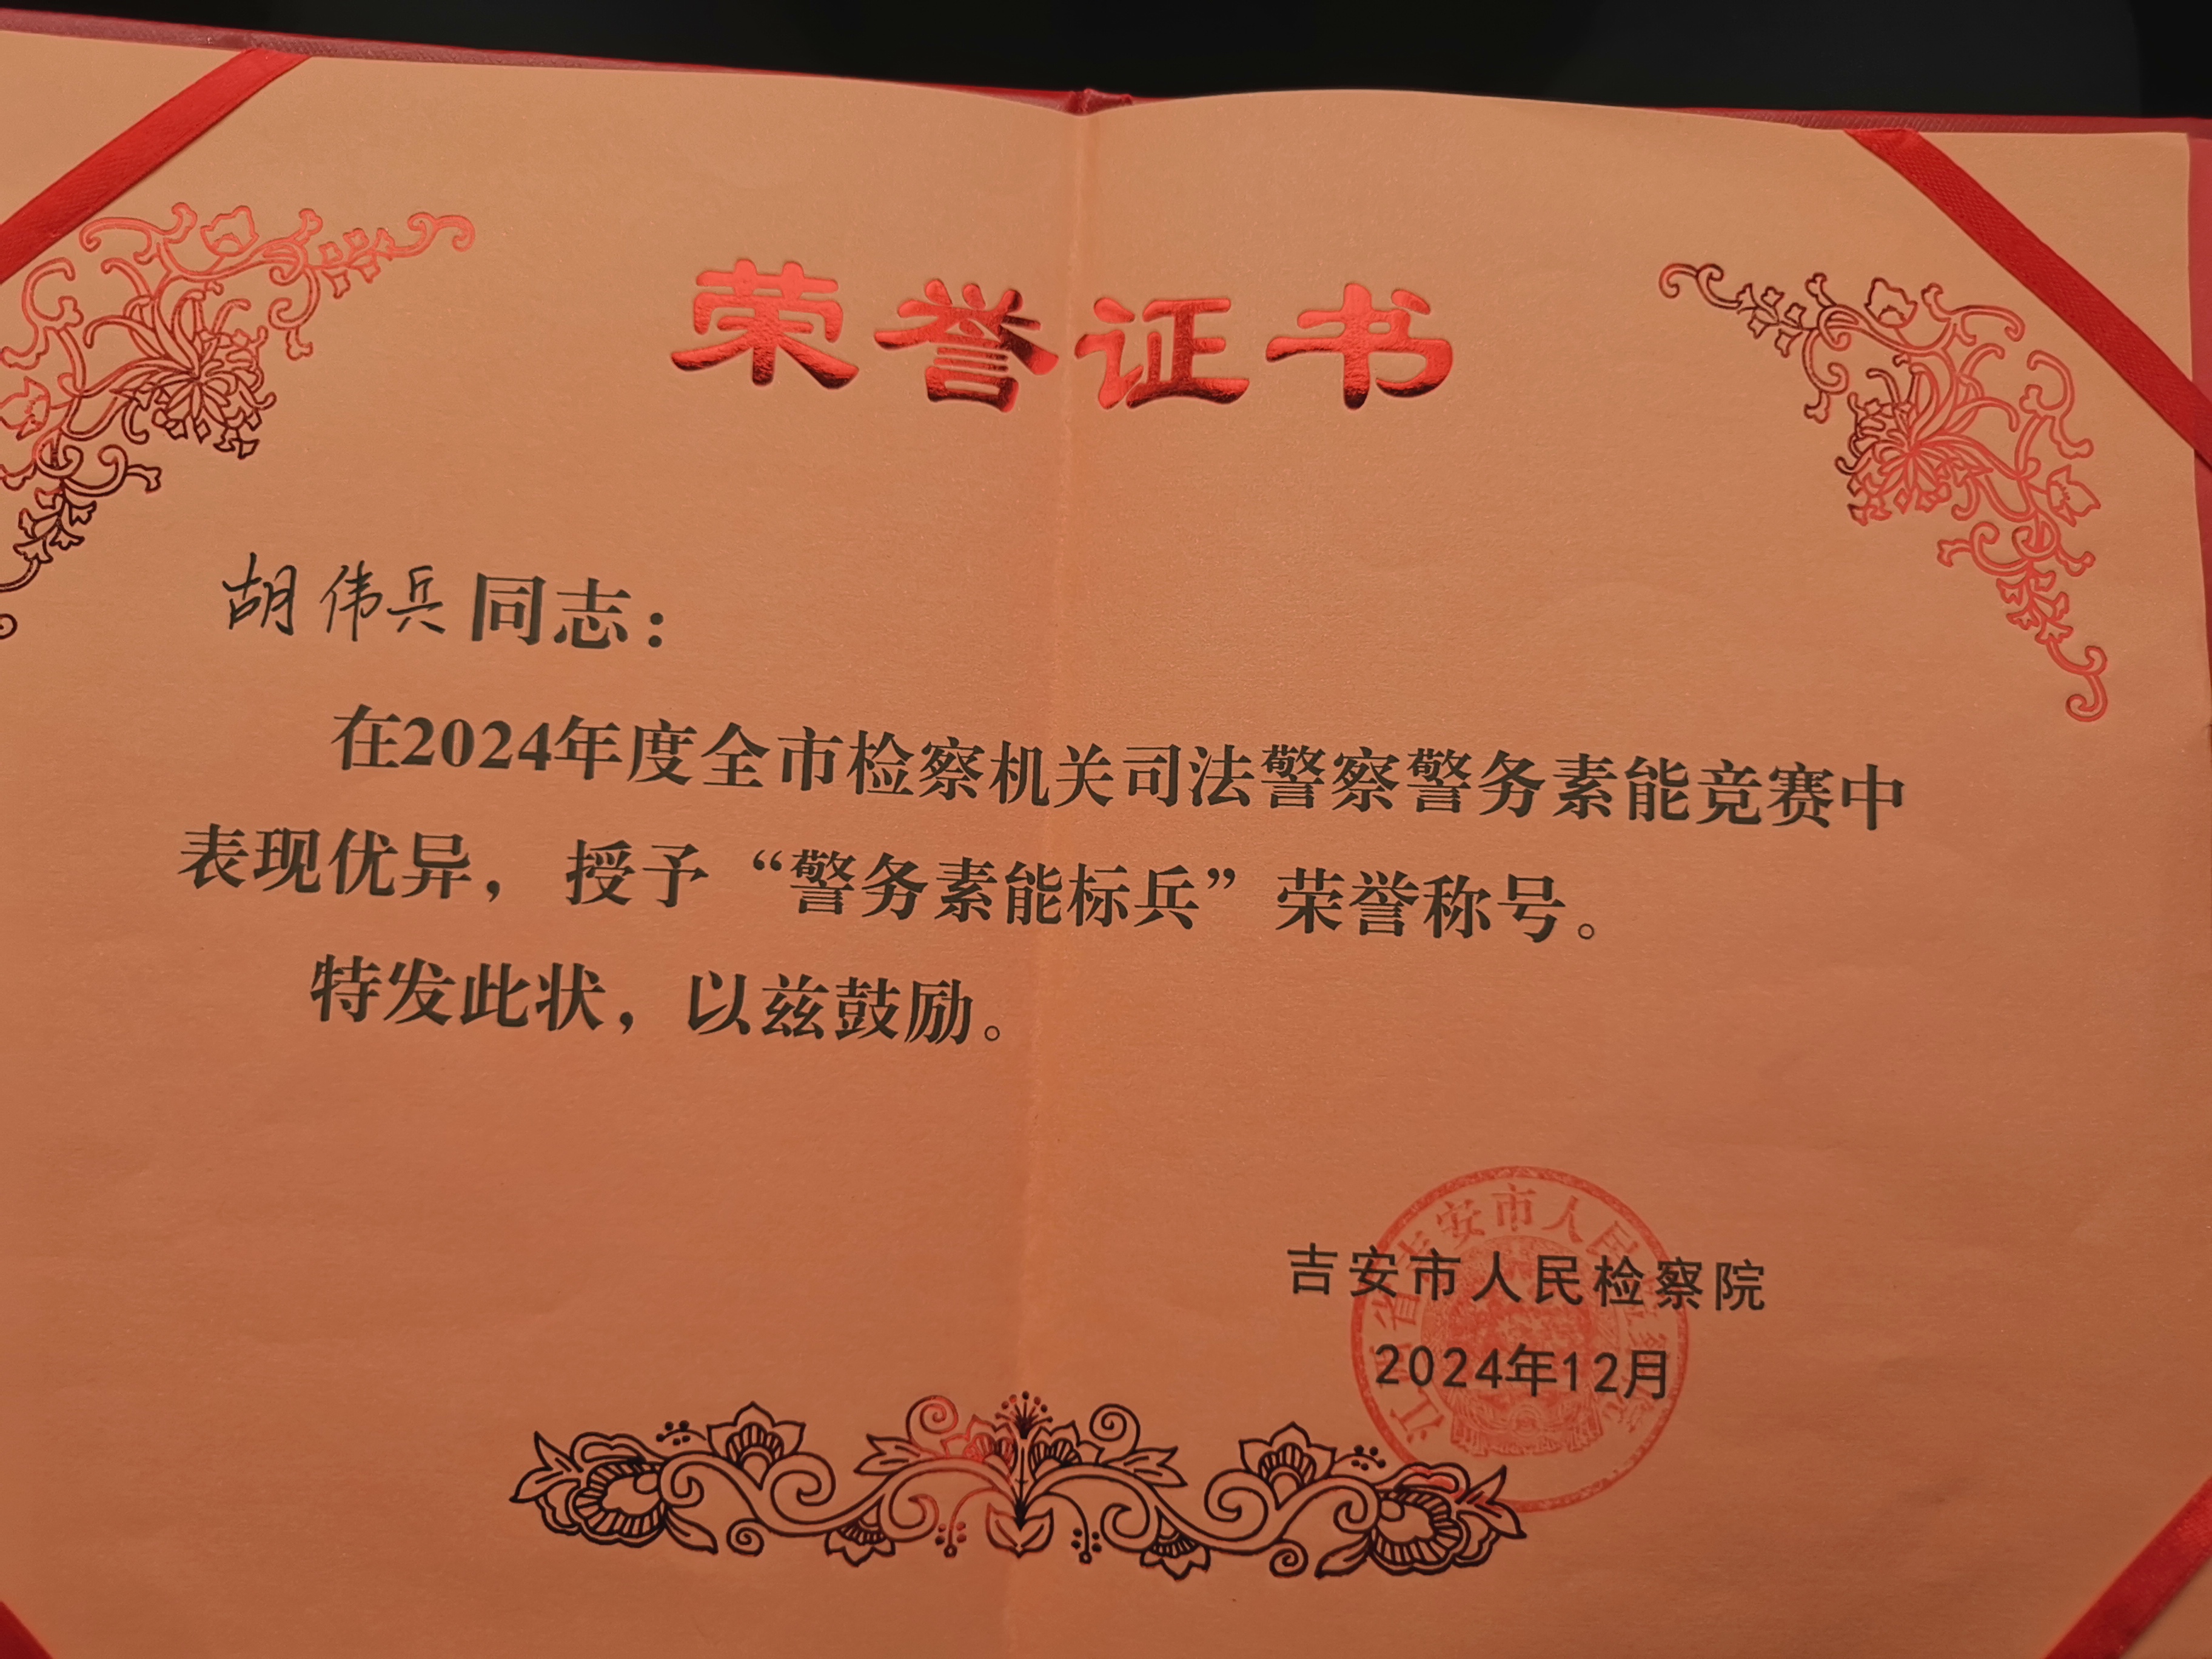 荣誉证书
胡伟兵同志：
在2024年度全市检察机关司法警察警务素能竞赛中
表现优异，授予“警务素能标兵”荣誉称号。
特发此状，以兹鼓励。
吉安市人民检察院
2024年12月
江西省吉安市人民检察院